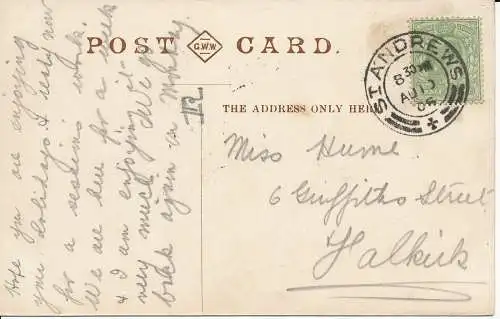 POST CARD.
G.W.W
THE ADDRESS ONLY HERE
ST ANDREWS
8 30
AU 13
06
Miss Hume
6 Griffiths Street
Falkirk
Hope you are enjoying
your holidays & ready now
for a sessions work.
We are here for a week
& I am enjoying it
very much.
back again on Monday